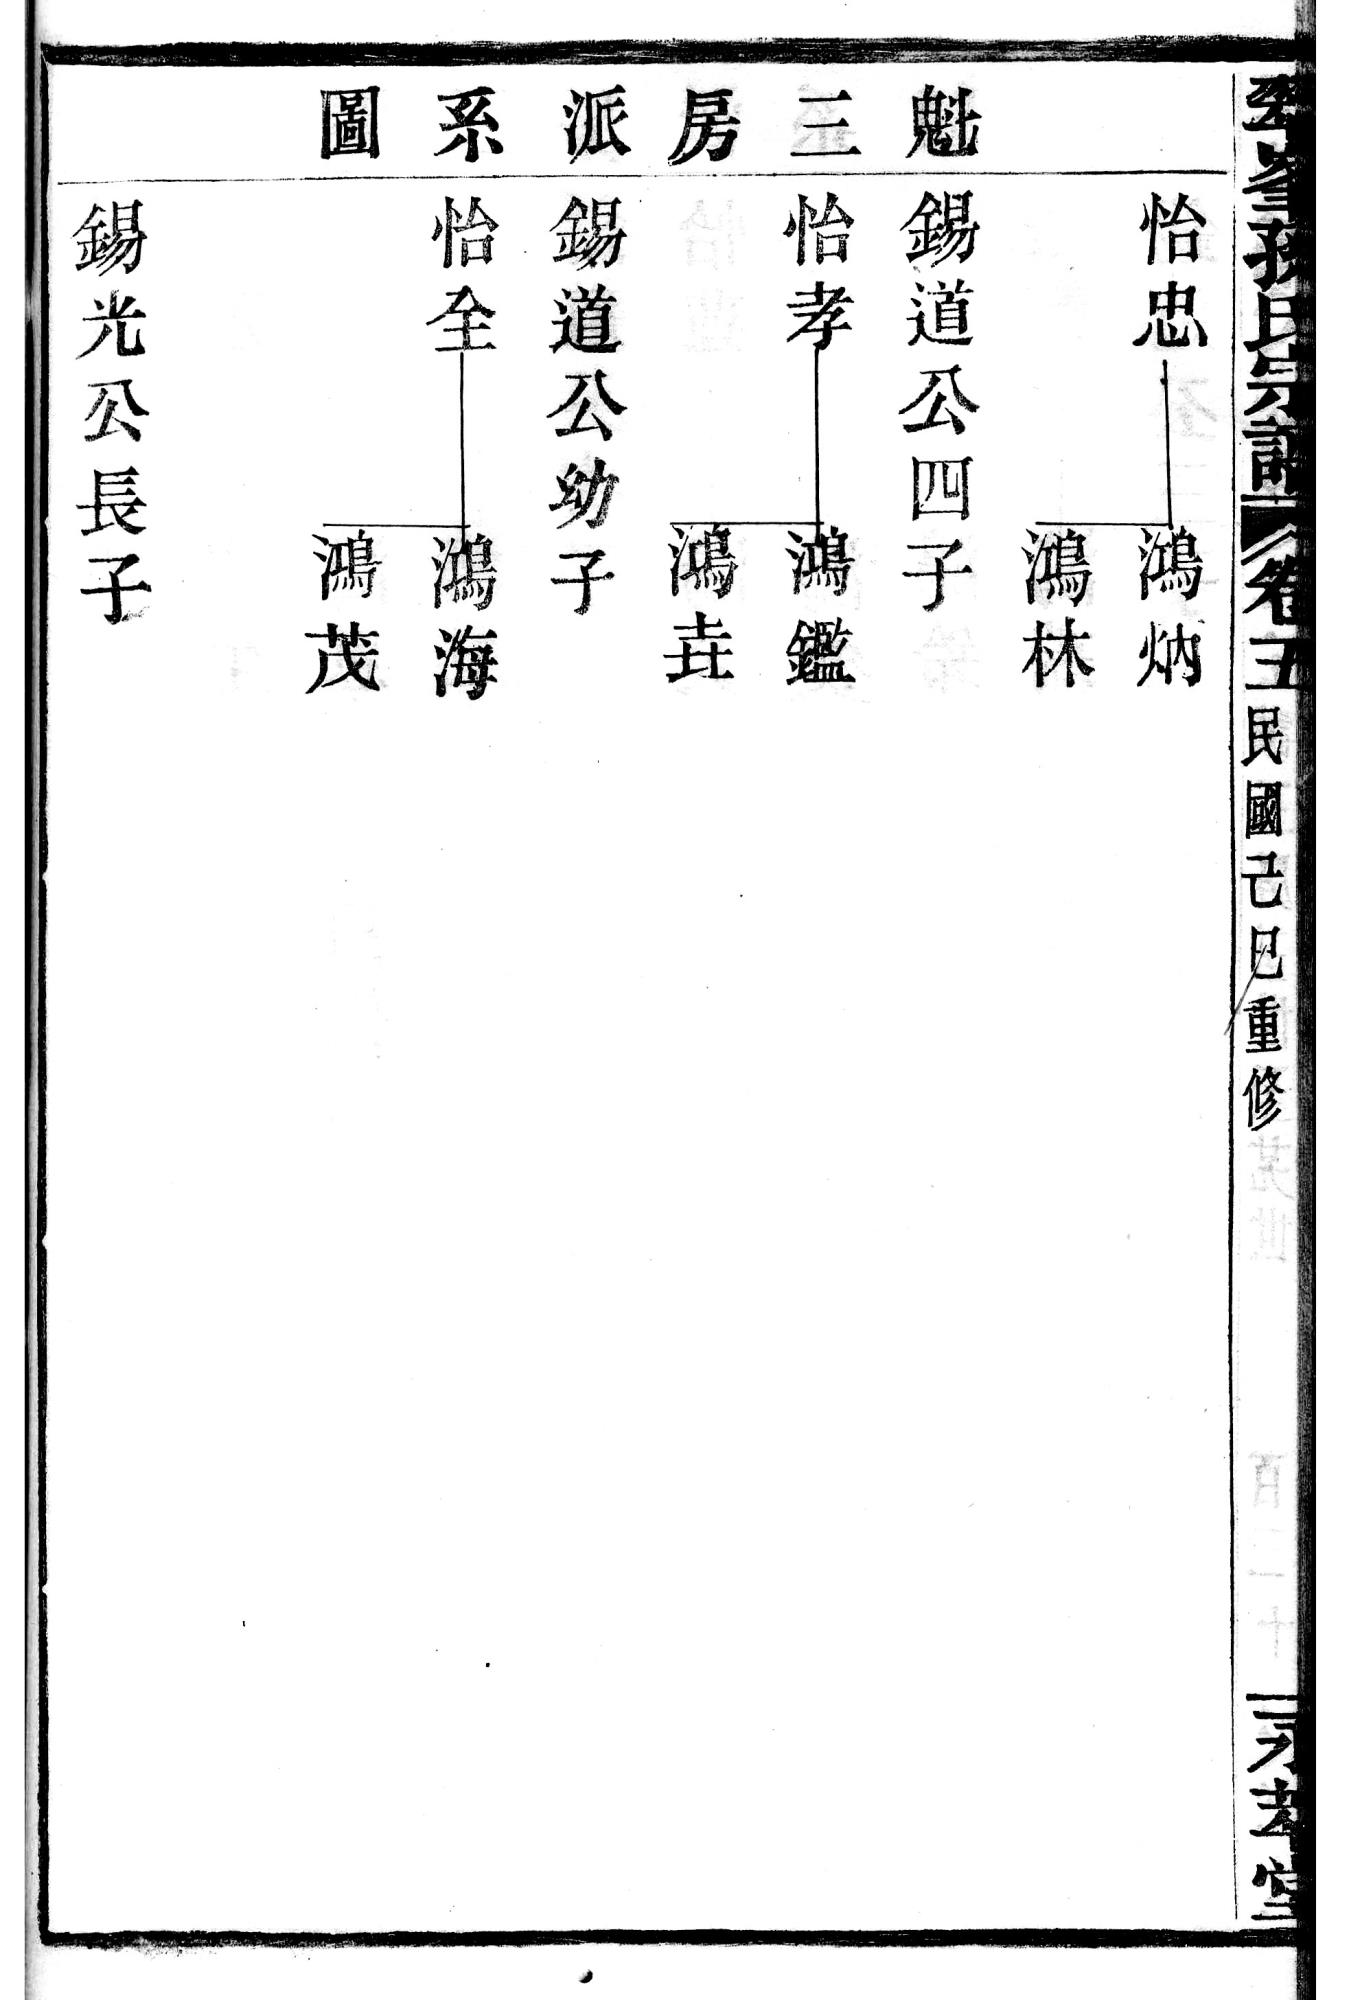 孫氏宗譜
卷五
民國己巳重修
魁三房派系圖
怡忠
鴻炳
鴻林
錫道公四子
怡孝
鴻鑑
鴻垚
錫道公幼子
怡全
鴻海
鴻茂
錫光公長子